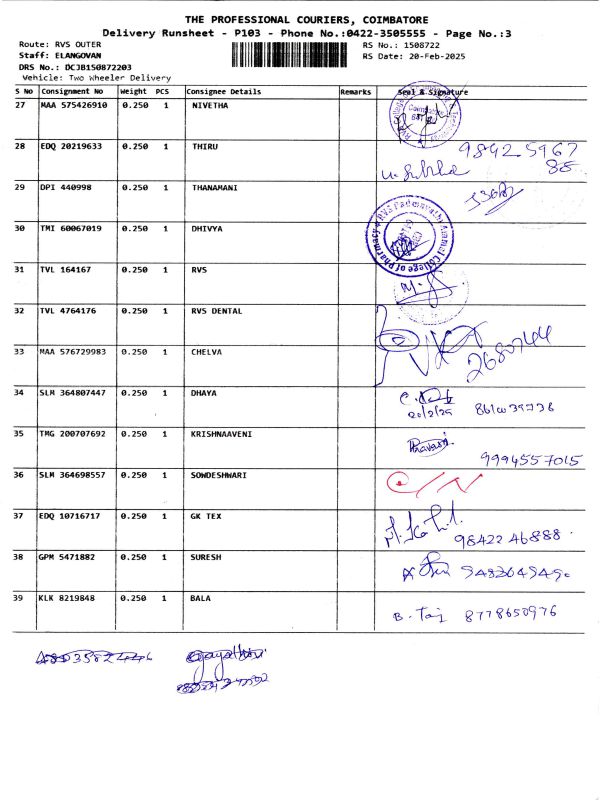 THE PROFESSIONAL COURIERS, COIMBATORE
Delivery Runsheet - P103 - Phone No.:0422-3505555 - Page No.:3
Route: RVS OUTER RS No.: 1508722
Staff: ELANGOVAN RS Date: 20-Feb-2025
DRS No.: DCJB1S0872203
Vehicle: Two Wheeler Delivery
S No Consignment No Weight PCS Consignee Details Remarks Seal & Signature
27 MAA 575426910 0.250 1 NIVETHA
28 EDQ 20219633 0.250 1 THIRU 98425967
88
29 DPI 440998 0.250 1 THANAMANI
30 TMI 60067019 0.250 1 DHIVYA RVS Padmavathi Ammal College of Pharmacy
31 TVL 164167 0.250 1 RVS
32 TVL 4764176 0.250 1 RVS DENTAL
2680744
33 MAA 576729983 0.250 1 CHELVA
34 SLM 364807447 0.250 1 DHAYA
20/2/25
35 TMG 200707692 0.250 1 KRISHNAAVENI
9994557015
36 SLM 364698557 0.250 1 SOWDESHWARI C/N
37 EDQ 10716717 0.250 1 GK TEX
98422 46888
38 GPM 5471882 0.250 1 SURESH
39 KLK 8219848 0.250 1 BALA B. Taj 8778650976